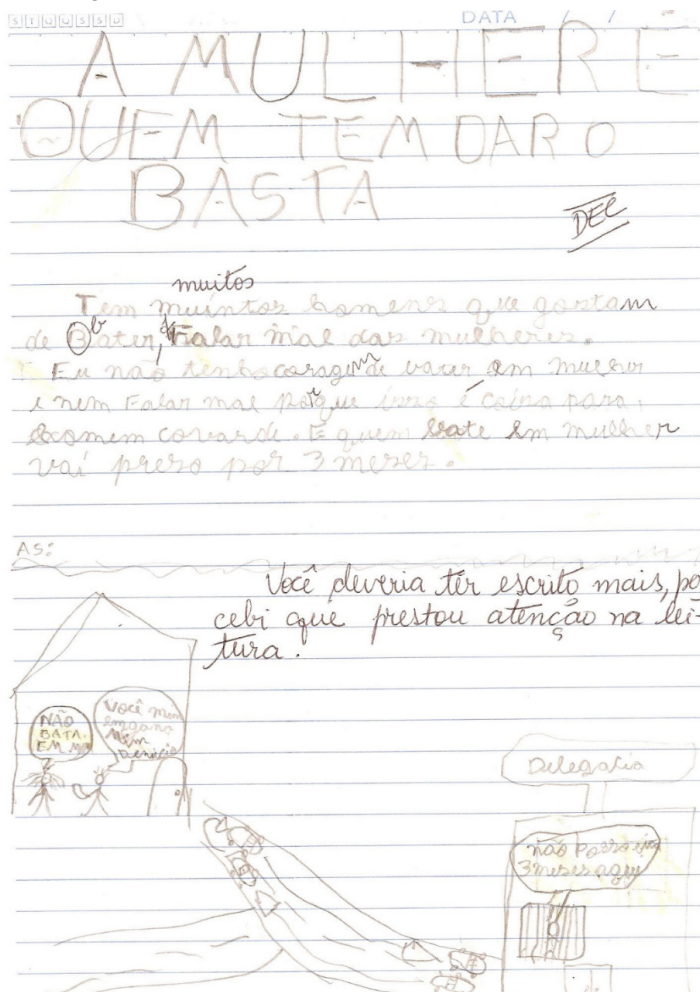 S T Q Q S S D
DATA / /
A MULHER É
QUEM TEM DAR O
BASTA
DEC
muitos
Tem muintos homens que gostam
de Bater, Falar mal das mulheres.
Eu não tenho coragem de bater em mulher
e nem Falar mal porque isso é coisa para
homem covarde. E quem bate em mulher
vai preso por 3 meses.
AS:
Você deveria ter escrito mais, per
cebi que prestou atenção na lei-
tura.
NÃO
BATA
EM MIM
Você mim
engana
Delegacia
não
3 meses aqui